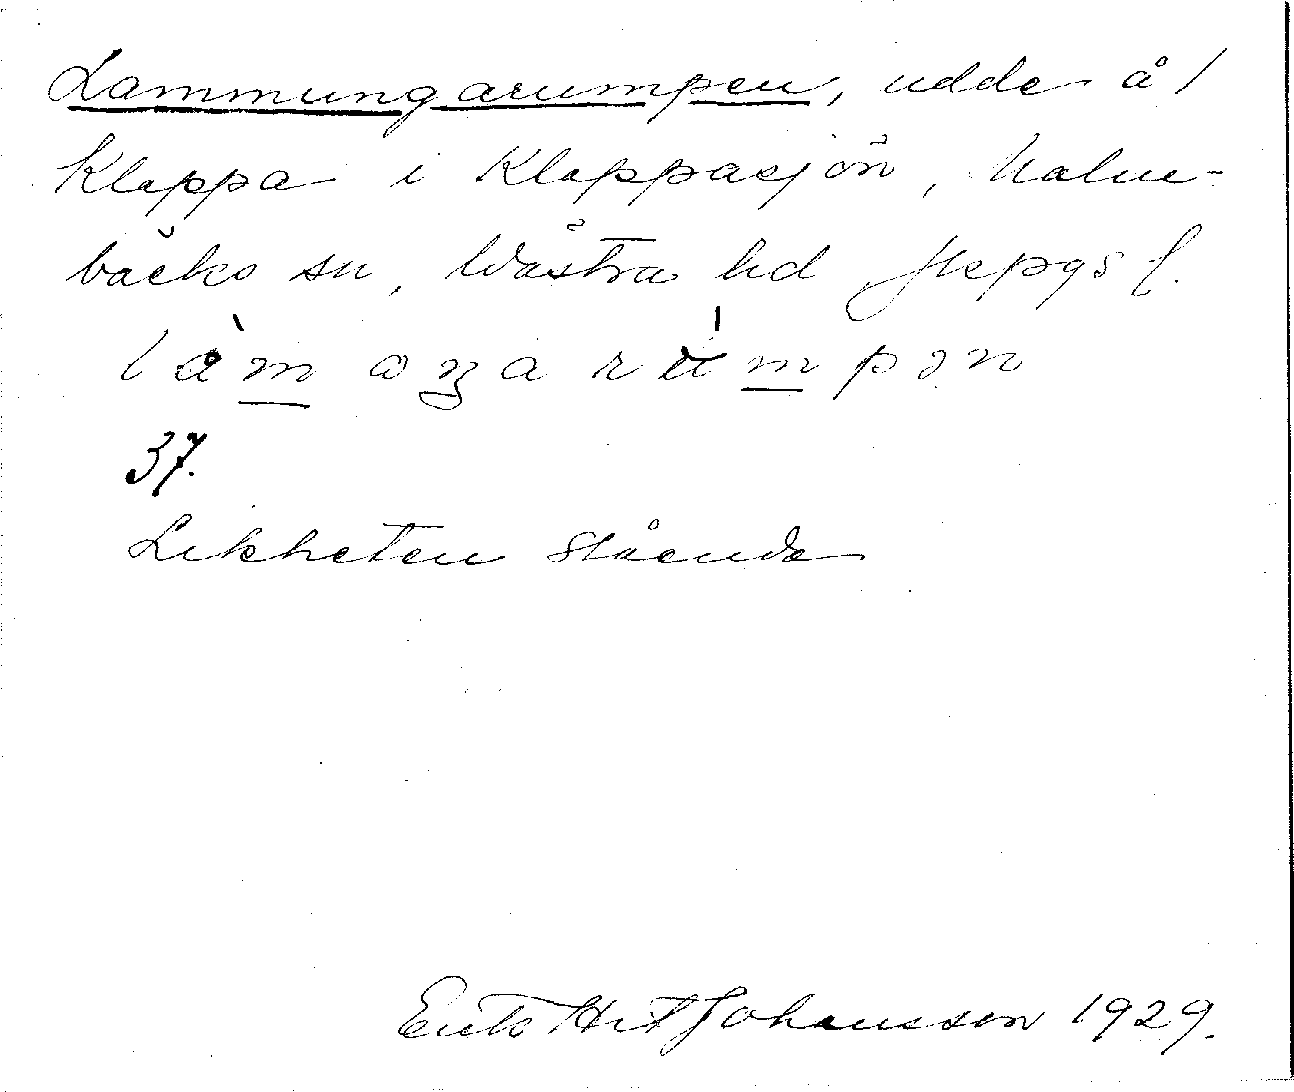 Lammungarumpen, udde å /
Klappa i Klappasjön, Malme-
bäcks sn, Västra hd Jkpgs l.
låmaŋarumpən
37.
Likheten stående
Erik Hrt Johansson 1929.